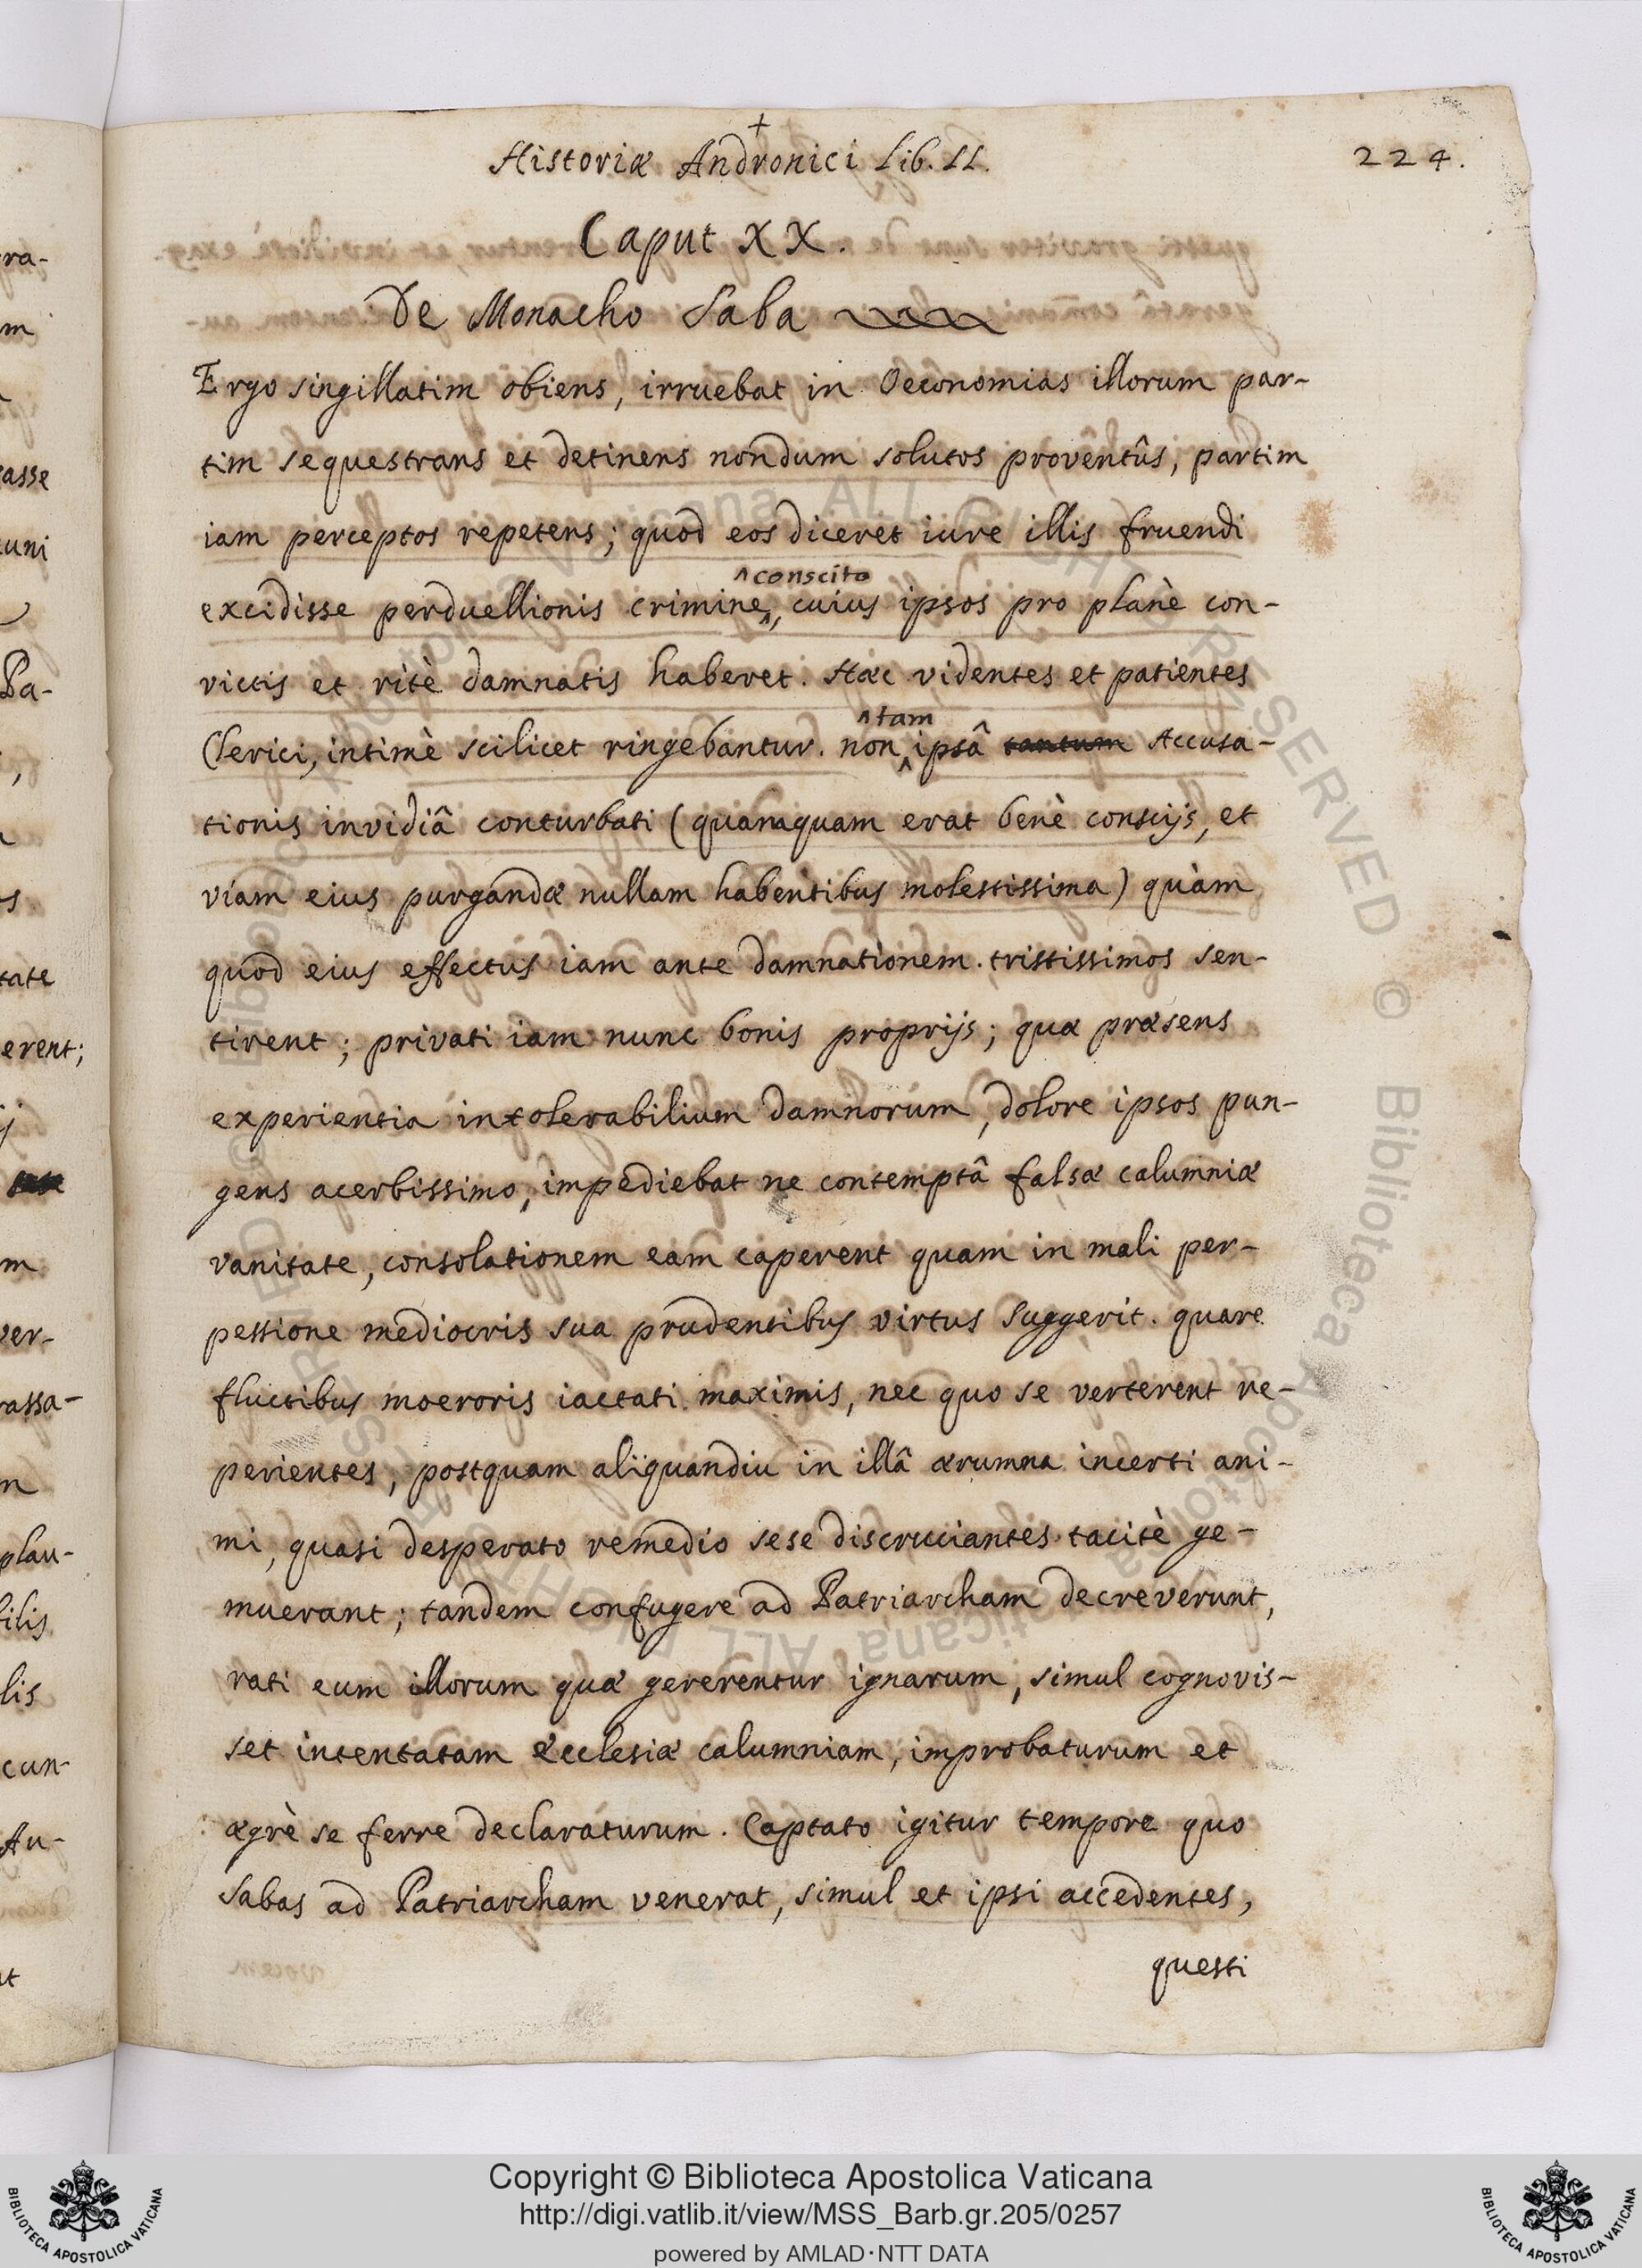 +
Historiæ Andronici Lib. II.
224.
Caput XX.
De Monacho Saba
Ergo singillatim obiens, irruebat in Oeconomias illorum par-
tim sequestrans et detinens nondum solutos proventûs, partim
iam perceptos repetens; quod eos diceret iure illis fruendi
^conscito
excidisse perduellionis crimine^, cuius ipsos pro planè con-
victis et ritè damnatis haberet. Hæc videntes et patientes
^tam
Clerici, intimè scilicet ringebantur. non^ipsâ tantum Accusa-
tionis invidiâ conturbati (quanquam erat benè conscijs, et
viam eius purgandæ nullam habentibus molestissima) quàm
quod eius effectus iam ante damnationem tristissimos sen-
tirent; privati iam nunc bonis proprijs; quæ præsens
experientia intolerabilium damnorum, dolore ipsos pun-
gens acerbissimo, impediebat ne contemptâ falsæ calumniæ
vanitate, consolationem eam caperent quam in mali per-
pessione mediocris sua prudentibus virtus suggerit. quare
fluctibus moeroris iactati maximis, nec quo se verterent re-
perientes, postquam aliquandiu in illâ ærumna incerti ani-
mi, quasi desperato remedio sese discruciantes tacitè ge-
muerant; tandem confugere ad Patriarcham decreverunt,
rati eum illorum quæ gererentur ignarum, simul cognovis-
set intentatam Ecclesiæ calumniam, improbaturum et
ægrè se ferre declaraturum. Captato igitur tempore quo
Sabas ad Patriarcham venerat, simul et ipsi accedentes,
questi
ra-
m
asse
uni
Pa-
,
s
tate
erent;
ij
m
ver-
rassa-
n
plau-
ilis
lis
cun-
Au-
nt
Copyright © Biblioteca Apostolica Vaticana
http://digi.vatlib.it/view/MSS_Barb.gr.205/0257
powered by AMLAD·NTT DATA
BIBLIOTECA APOSTOLICA VATICANA
BIBLIOTECA APOSTOLICA VATICANA